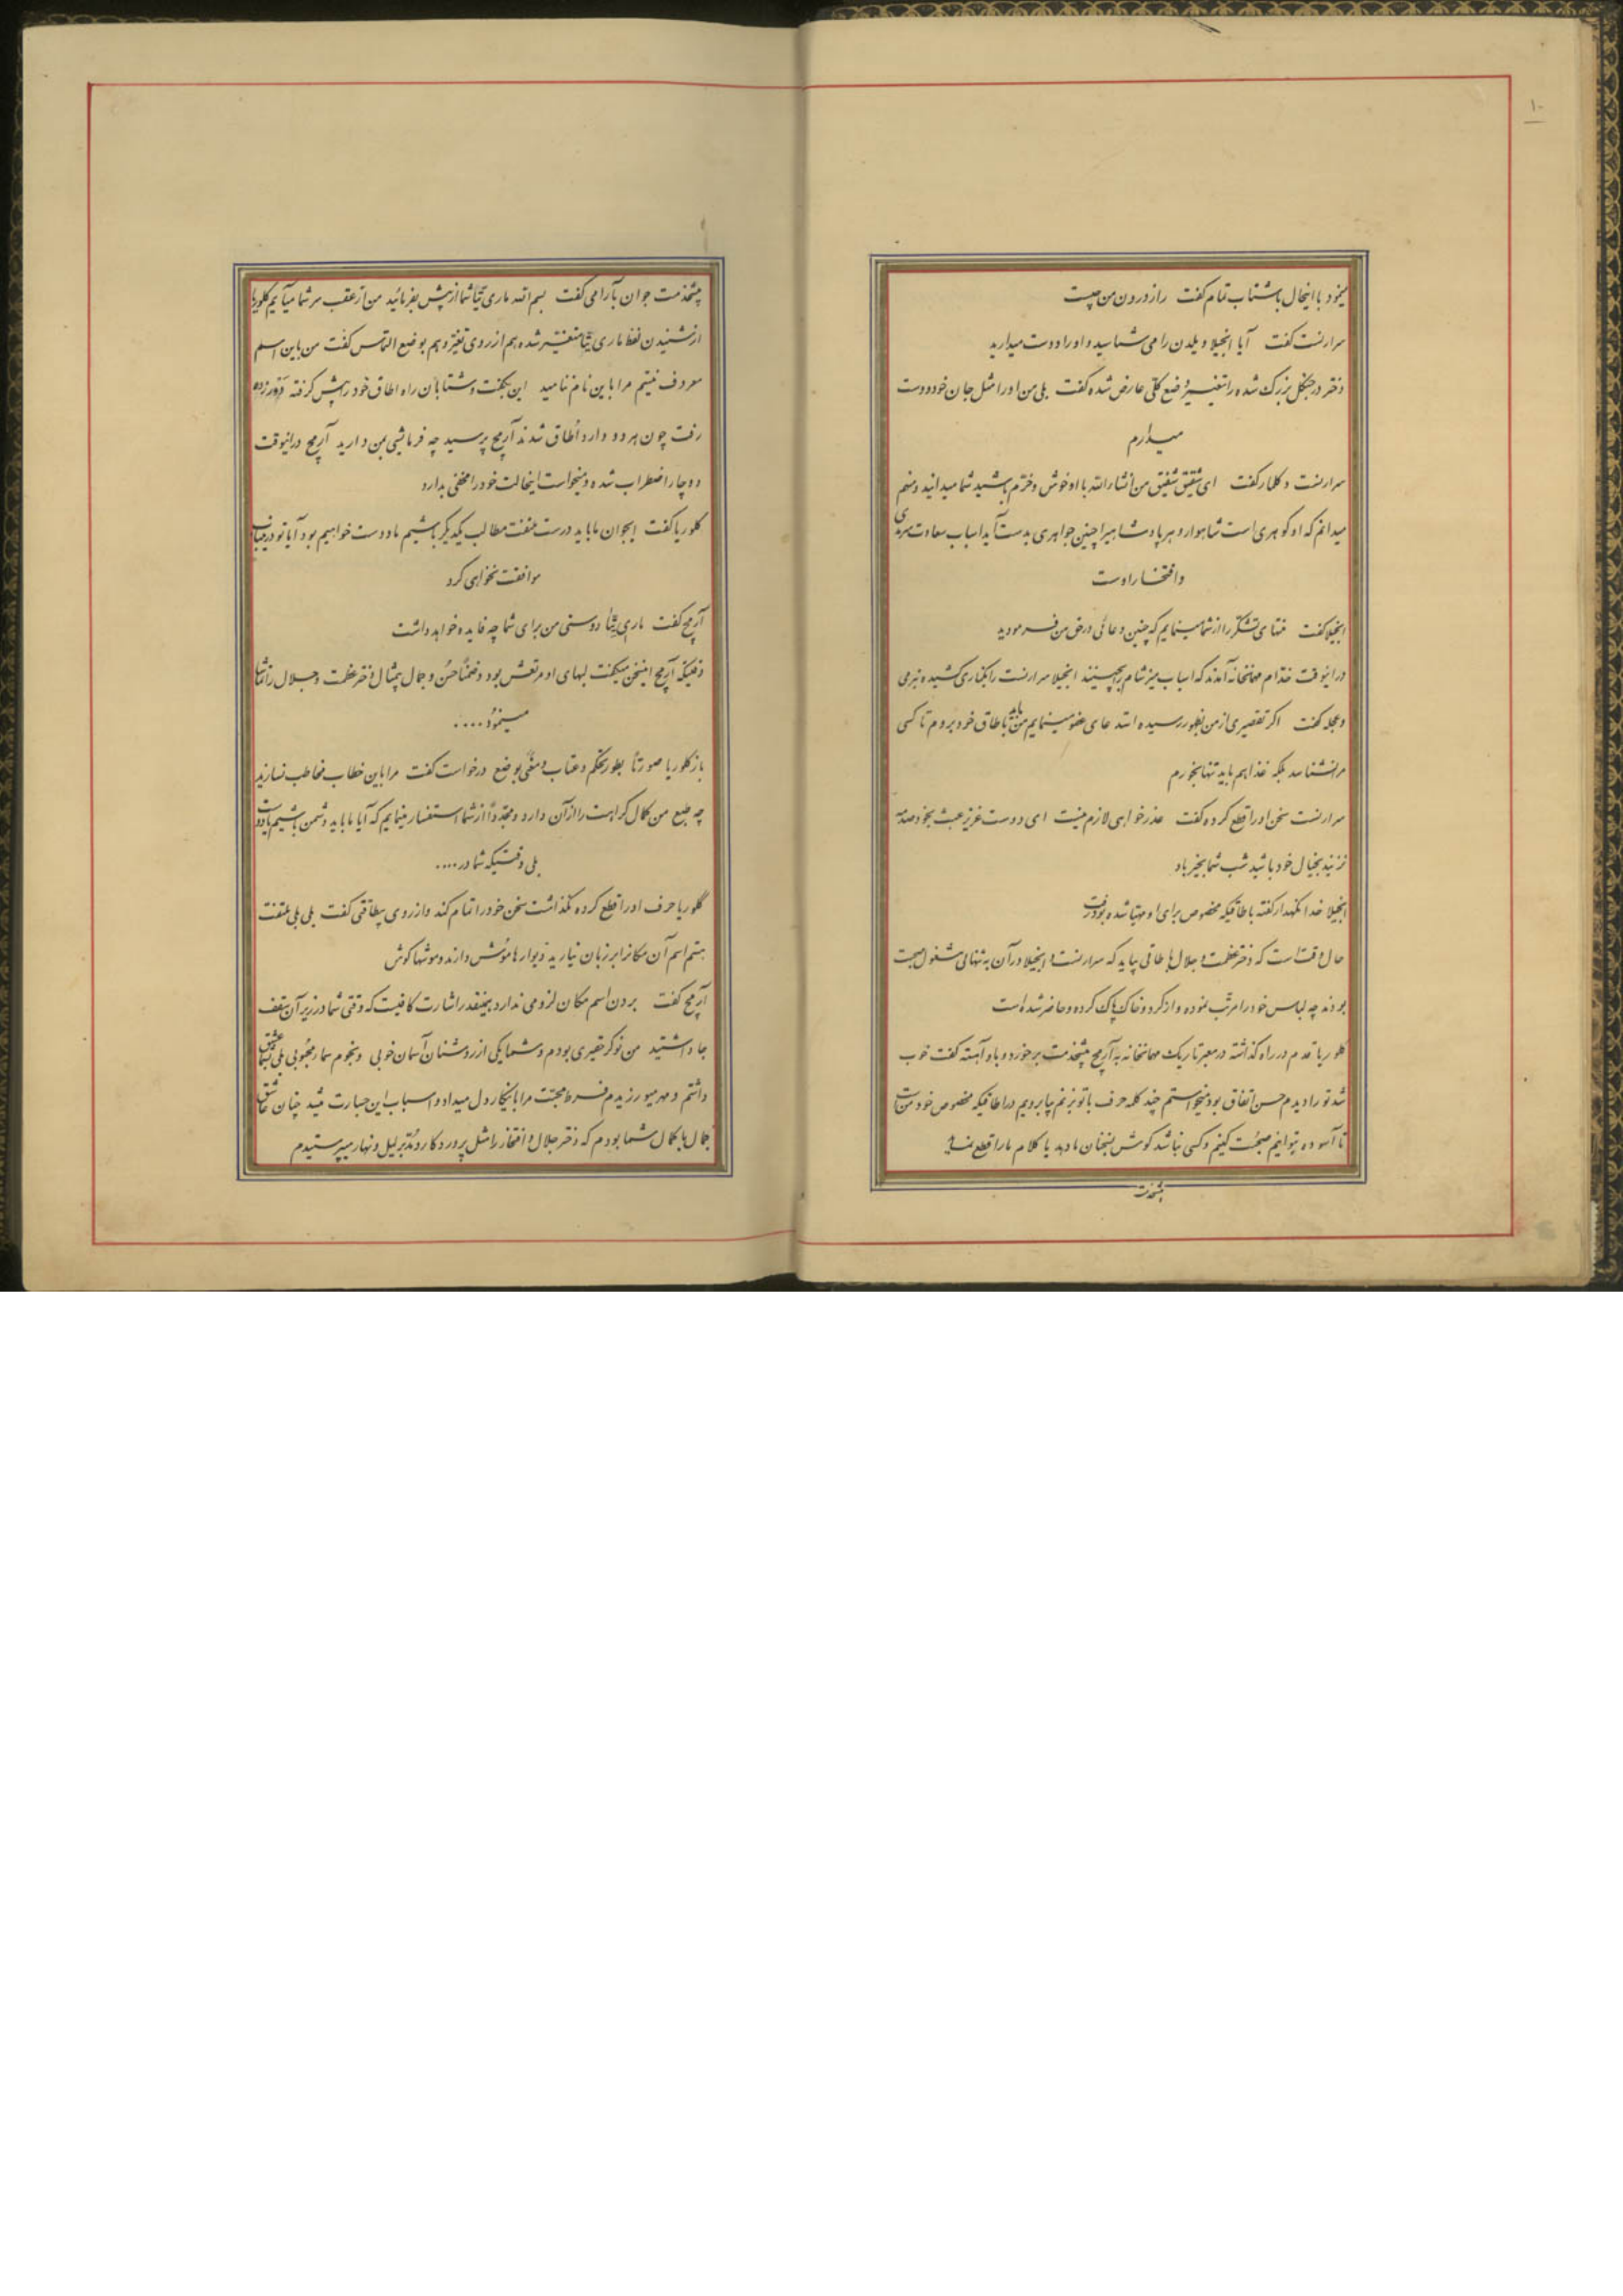 ۱۰
میخورد با اینحال باشتاب تمام گفت راز درون من چیست
سرارنست گفت آیا انجیلا ویلدن را می شناسید و او را دوست میدارید
دختر در جنگل بزرگ شده را تغییر وضع کلی عارض شده گفت بلی من او را مثل جان خود دوست
میدارم
سرارنست دکلمار گفت ای شقیق شفیق من انشاء الله با او خوش و خرم باشید شما میدانید و منهم
میدانم که او گوهری است شاهوار و هر پادشاهیرا چنین جواهری بدست آید اسباب سعادت سرمدی
و افتخار اوست
انجیلا گفت منتهای تشکر را از شما مینمایم که چنین دعائی در حق من فرمودید
در اینوقت خدام مهمانخانه آمدند که اسباب میز شام را بچینند انجیلا سرارنست را بکناری کشیده بنرمی
و عجله گفت اگر تقصیری از من بظهور رسیده استدعای عفو مینمایم من باید باطاق خود بروم تا کسی
مرا نشناسد بلکه غذا هم باید تنها بخورم
سرارنست سخن او را قطع کرده گفت عذرخواهی لازم نیست ای دوست عزیز عبث بخود صدمه
نزنید بخیال خود باشید شب شما بخیر باد
انجیلا خدا نگهدار گفته باطاقیکه مخصوص برای او مهیا شده بود رفت
حال وقت است که دختر عظمت و جلال باطاقی بیاید که سرارنست و انجیلا در آن به تنهائی مشغول صحبت
بودند چه لباس خود را مرتب نموده و از گرد و خاک پاک کرده و حاضر شده است
گلوریا قدم در راه گذاشته در معبر تاریک مهمانخانه به آرمج پیشخدمت برخورد و باو آهسته گفت خوب
شد تو را دیدم حسن اتفاق بود میخواستم چند کلمه حرف با تو بزنم بیا برویم در اطاقیکه مخصوص خود من است
تا آسوده بتوانیم صحبت کنیم و کسی نباشد گوش بسخنان ما دهد یا کلام ما را قطع نماید
پیشخدمت
پیشخدمت جوان بآرامی گفت بسم الله ماری تیتا شما از پیش بفرمائید من از عقب سر شما میآیم گلوریا
از شنیدن لفظ ماری تیتا متغیر شده هم از روی تغیر و هم بوضع التماس گفت من باین اسم
معروف نیستم مرا باین نام ننامید این بگفت و شتابان راه اطاق خود را پیش گرفته
رفت چون هر دو وارد اطاق شدند آرمج پرسید چه فرمایشی بمن دارید آرمج در اینوقت
دوچار اضطراب شده و میخواست اینحالت خود را مخفی بدارد
گلوریا گفت ایجوان ما باید درست ملتفت مطالب یکدیگر باشیم ما دوست خواهیم بود آیا تو در اینباب
موافقت نخواهی کرد
آرمج گفت ماری تیتا دوستی من برای شما چه فایده خواهد داشت
وقتیکه آرمج اینسخن میگفت لبهای او مرتعش بود و ضمناً حسن و جمال بیمثال دختر عظمت و جلال را تماشا
مینمود.....
باز گلوریا صورتاً بطور تحکم و عتاب و معنی بوضع درخواست گفت مرا باین خطاب مخاطب نسازید
چه طبع من کمال کراهت را از آن دارد و مجدداً از شما استفسار مینمایم که آیا ما باید دشمن باشیم یا دوست
بلی وقتیکه شما در....
گلوریا حرف او را قطع کرده نگذاشت سخن خود را تمام کند و از روی بیطاقتی گفت بلی بلی ملتفت
هستم اسم آن مکانرا بر زبان نیارید دیوارها موش دارند و موشها گوش
آرمج گفت بردن اسم مکان لزومی ندارد بهمینقدر اشارت کافیست که وقتی شما در زیر آن سقف
جا داشتید من نوکر حقیری بودم و شما یکی از روشنان آسمان خوبی و نجوم سمای محبوبی بلی بشما عشق
داشتم و مهر میورزیدم فرط محبت مرا باینکار دل میداد و اسباب این جسارت میشد چنان عاشق
جمال با کمال شما بودم که دختر جلال و افتخار را مثل پروردگار و مدبر لیل و نهار میپرستیدم